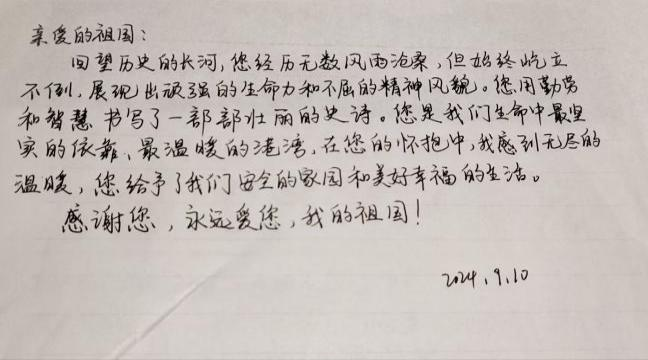 亲爱的祖国：
回望历史的长河，您经历无数风雨沧桑，但始终屹立
不倒，展现出顽强的生命力和不屈的精神风貌。您用勤劳
和智慧书写了一部部壮丽的史诗。您是我们生命中最坚
实的依靠、最温暖的港湾，在您的怀抱中，我感到无尽的
温暖，您给予了我们安全的家园和美好幸福的生活。
感谢您，永远爱您，我的祖国！
2024.9.10